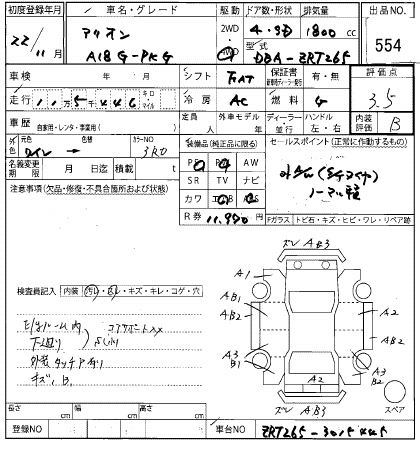 初度登録年月 車名・グレード 駆動 ドア数・形状 排気量 出品NO.
22/11月 アリオン 2WD 4・SD 1800cc 554
A18 G-PKG 4WD 型式 DBA-ZRT265
車検 年 月 シフト FAT 保証書 有・無 評価点
走行 115446 キロ マイル 冷房 AC 燃料 G 3.5
車歴 自家用・レンタ・事業用( ) 定員 人 外車モデル 年 ディーラー 並行 ハンドル 左・右 内装評価 B
外色 元色 ワイン 色替 カラーNO 3R0 装備品(純正品に限る) セールスポイント(正常に作動するもの)
名義変更期限 月 日迄 積載 t PS PW AW
注意事項(欠品・修復・不具合箇所および状態) SR TV ナビ
カワ
R券 11,980円 Fガラス トビ石・キズ・ヒビ・ワレ・リペア跡
ズレ A B3
A1
AB1
AB2
A2
AB2
A3
B1
A3
B2
A2
ズレ AB3
スペア
検査員記入 内装 汚れ・スレ・キズ・キレ・コゲ・穴
E/gルーム内
下廻り
外装 タッチアリ
キズ、B.
長さ cm 幅 cm 高さ cm
登録NO 車台NO ZRT265-3015445